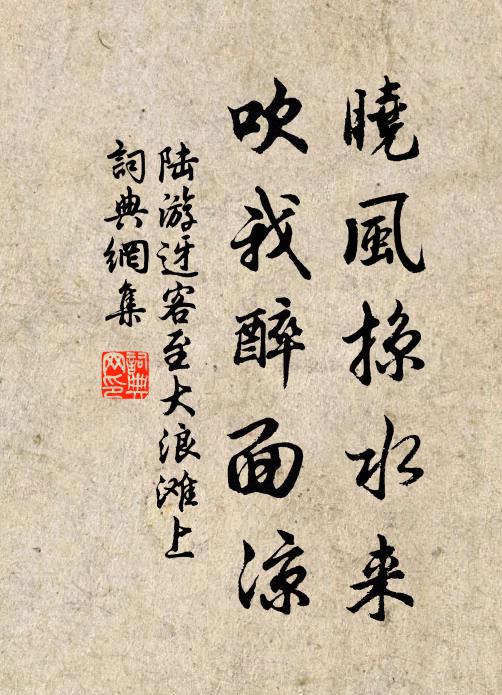 曉風掠水来
吹我醉面涼
陆游迓客至大浪滩上
詞典網集
詞典网印